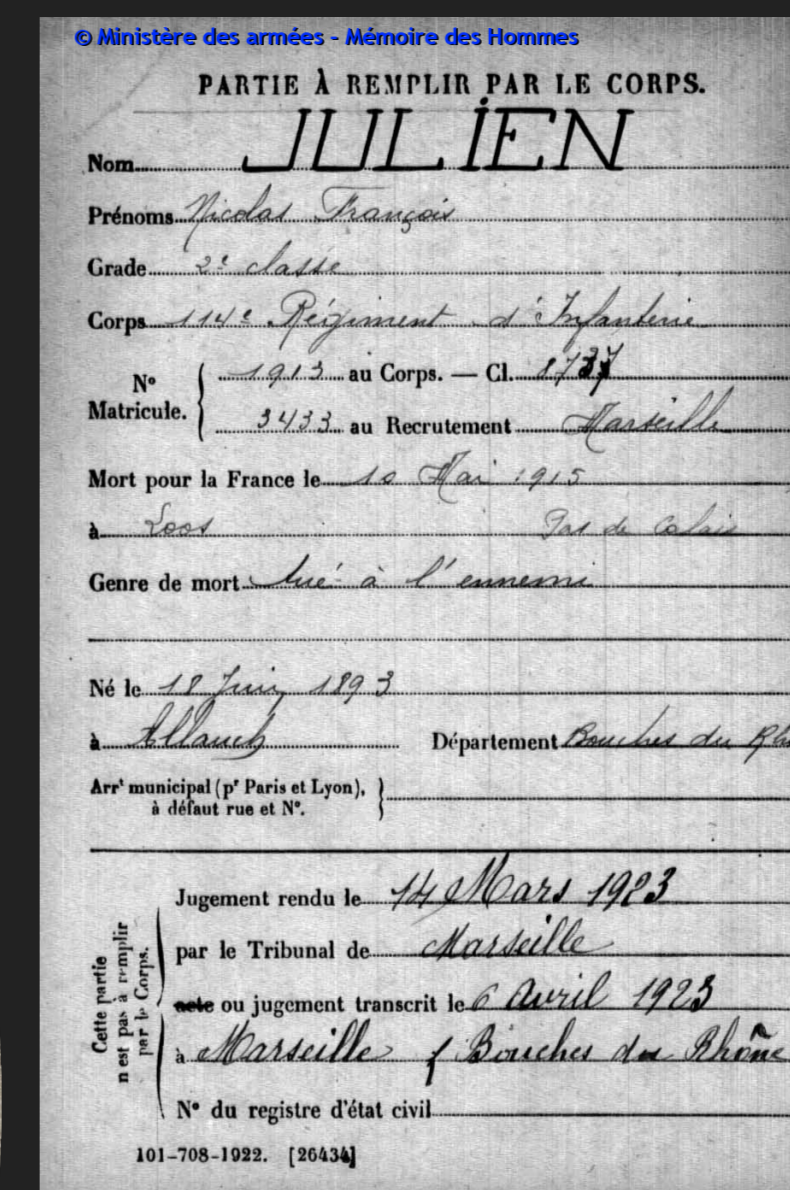 © Ministère des armées - Mémoire des Hommes
PARTIE À REMPLIR PAR LE CORPS.
Nom JULIEN
Prénoms Nicolas François
Grade 2e classe
Corps 114e Régiment d'Infanterie
No Matricule. { 1913 au Corps. — Cl.
3433 au Recrutement Marseille
Mort pour la France le 10 Mai 1915
à Loos Pas de Calais
Genre de mort tué à l'ennemi
Né le 18 Juin 1893
à Allauch Département Bouches du Rh
Arrt municipal (pr Paris et Lyon), }
à défaut rue et No.
Cette partie
n'est pas à remplir
par le Corps.
Jugement rendu le 14 Mars 1923
par le Tribunal de Marseille
acte ou jugement transcrit le 6 Avril 1923
à Marseille Bouches du Rhône
No du registre d'état civil
101-708-1922. [26434]